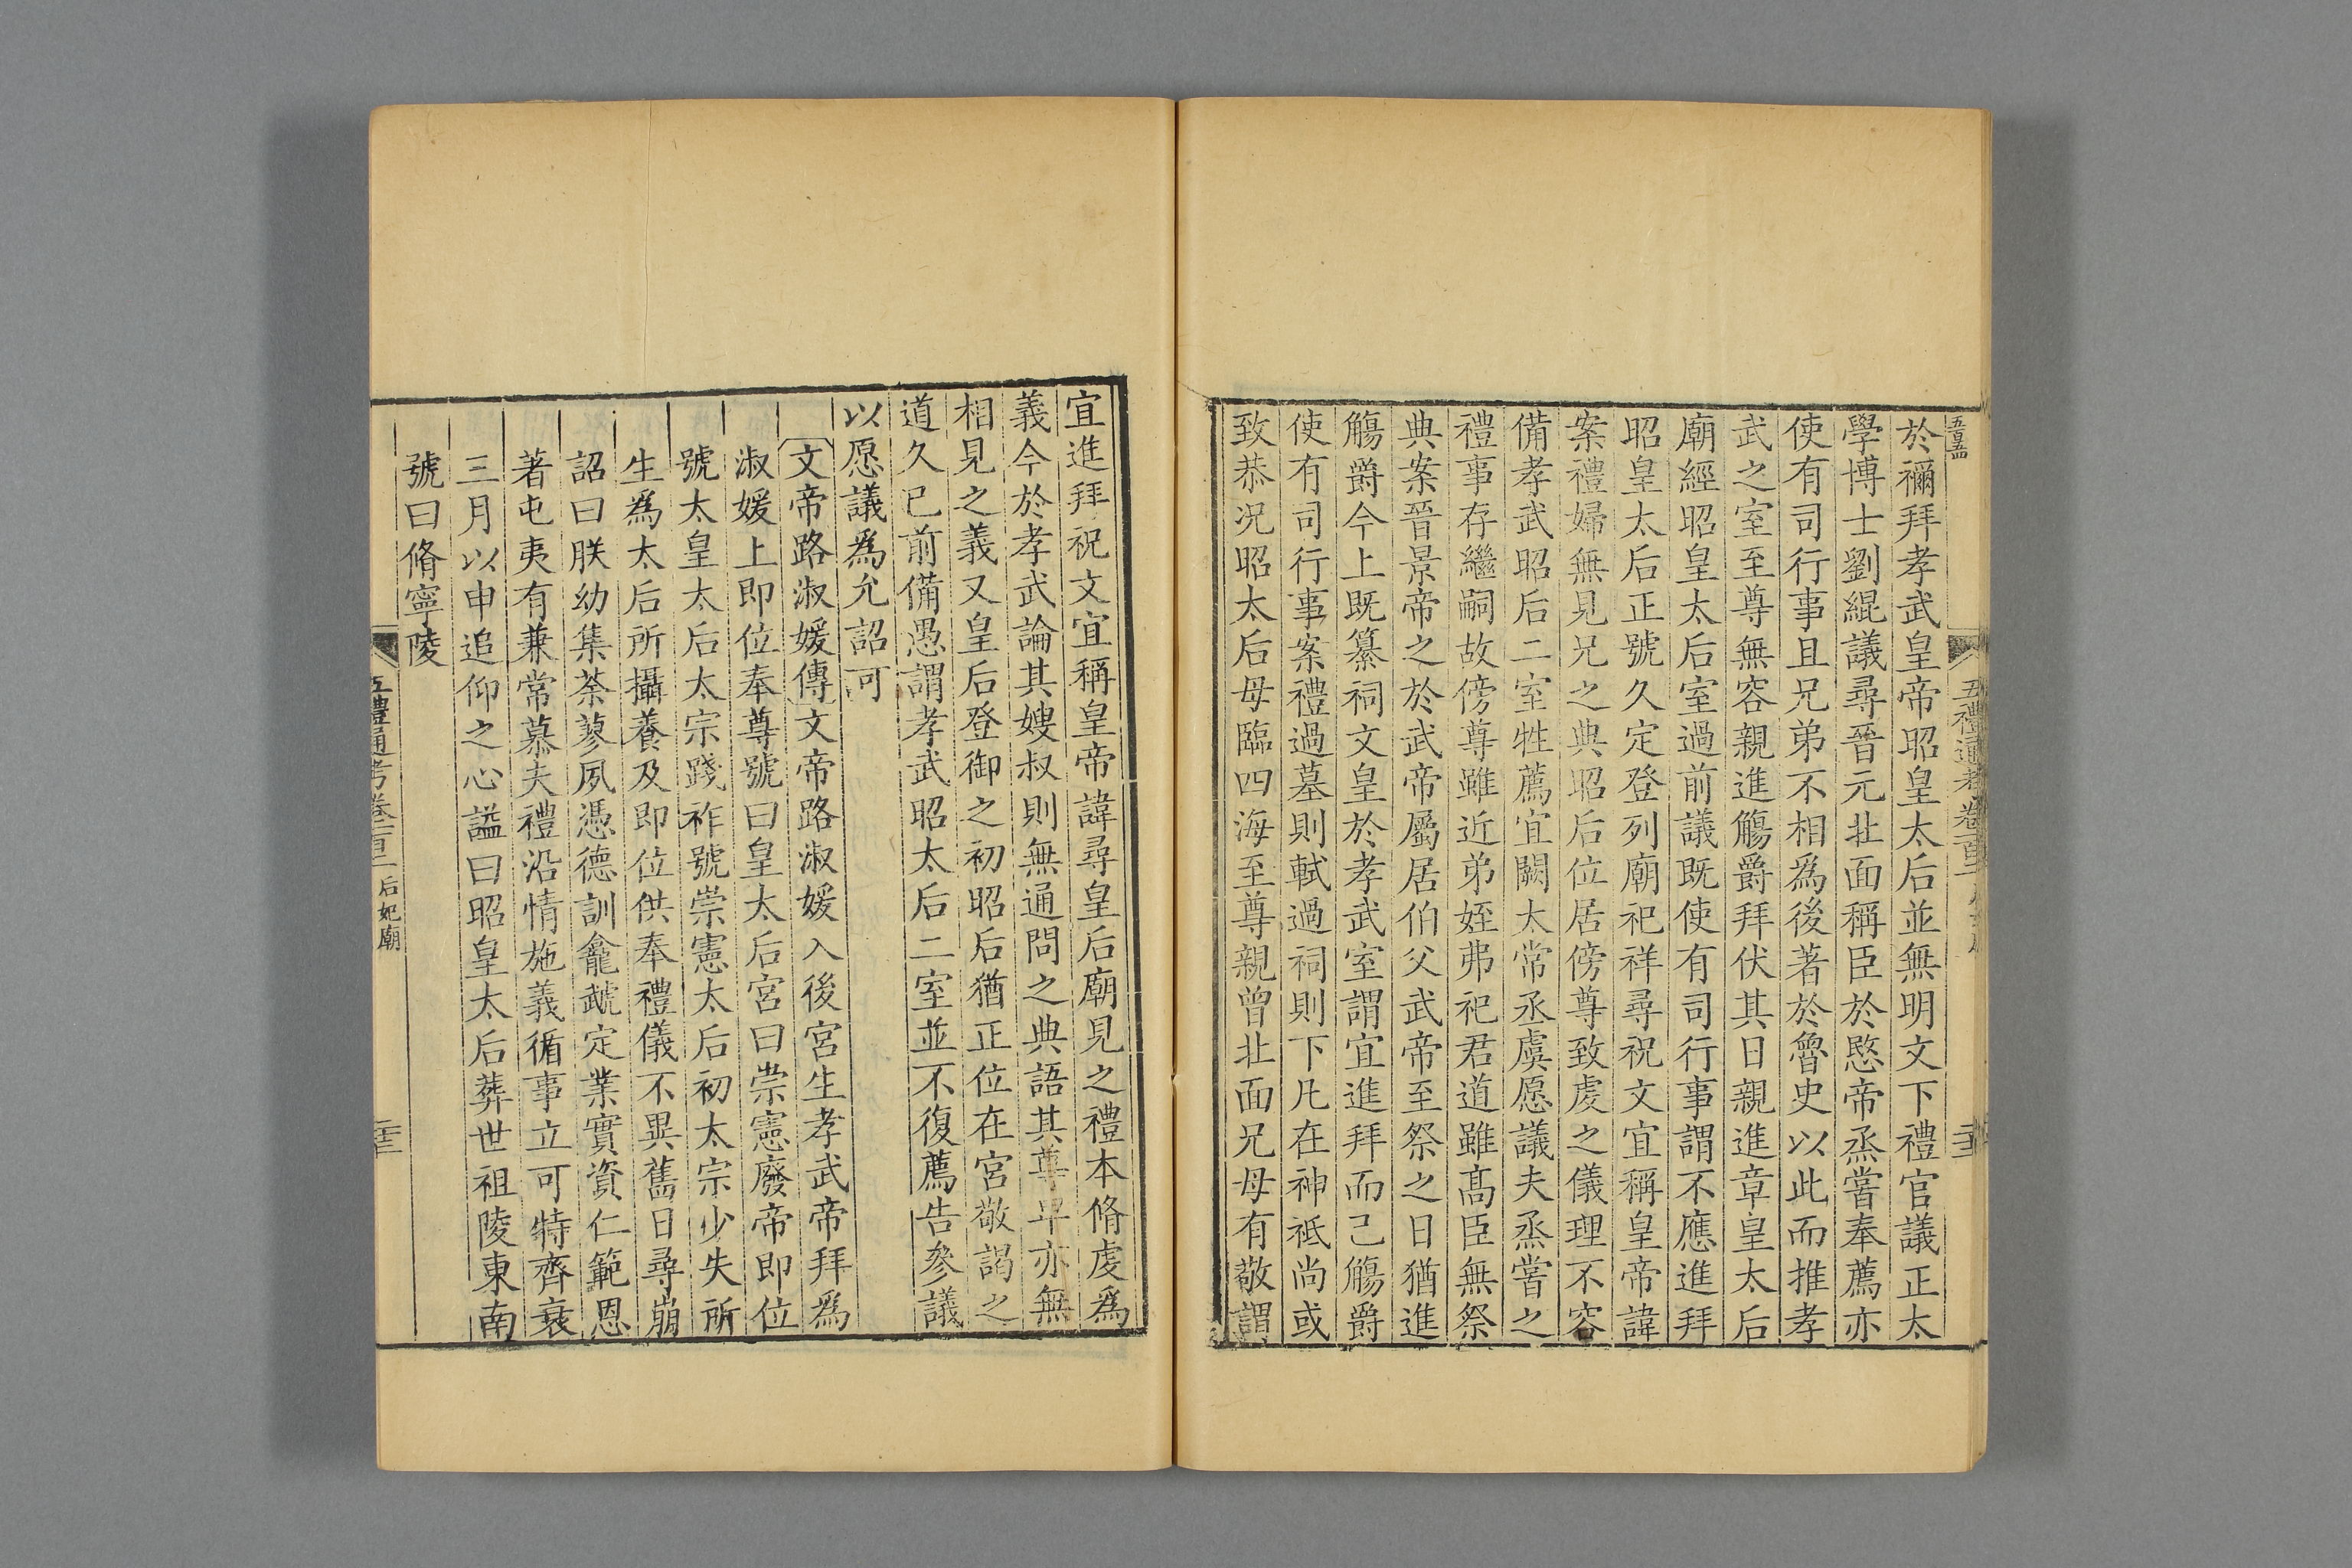 於禰拜孝武皇帝昭皇太后並無明文下禮官議正太
學博士劉緄議尋晉元北面稱臣於愍帝烝嘗奉薦亦
使有司行事且兄弟不相爲後著於魯史以此而推孝
武之室至尊無容親進觴爵拜伏其日親進章皇太后
廟經昭皇太后室過前議既使有司行事謂不應進拜
昭皇太后正號久定登列廟祀祥尋祝文宜稱皇帝諱
案禮婦無見兄之典昭后位居傍尊致虔之儀理不容
備孝武昭后二室牲薦宜闕太常丞虞愿議夫烝嘗之
禮事存繼嗣故傍尊雖近弟姪弗祀君道雖髙臣無祭
典案晉景帝之於武帝屬居伯父武帝至祭之日猶進
觴爵今上既纂祠文皇於孝武室謂宜進拜而已觴爵
使有司行事案禮過墓則軾過祠則下凡在神祇尚或
致恭况昭太后母臨四海至尊親曾北面兄母有敬謂
宜進拜祝文宜稱皇帝諱尋皇后廟見之禮本脩虔爲
義今於孝武論其嫂叔則無通問之典語其尊卑亦無
相見之義又皇后登御之初昭后猶正位在宮敬謁之
道久已前備愚謂孝武昭太后二室並不復薦告參議
以愿議爲允詔可
文帝路淑媛傳文帝路淑媛入後宮生孝武帝拜爲
淑媛上即位奉尊號曰皇太后宮曰崇憲廢帝即位
號太皇太后太宗踐祚號崇憲太后初太宗少失所
生爲太后所攝養及即位供奉禮儀不異舊日尋崩
詔曰朕幼集荼蓼夙憑德訓龕虣定業實資仁範恩
著屯夷有兼常慕夫禮沿情施義循事立可特齊衰
三月以申追仰之心諡曰昭皇太后葬世祖陵東南
號曰脩寧陵
五禮通考卷 后妃廟